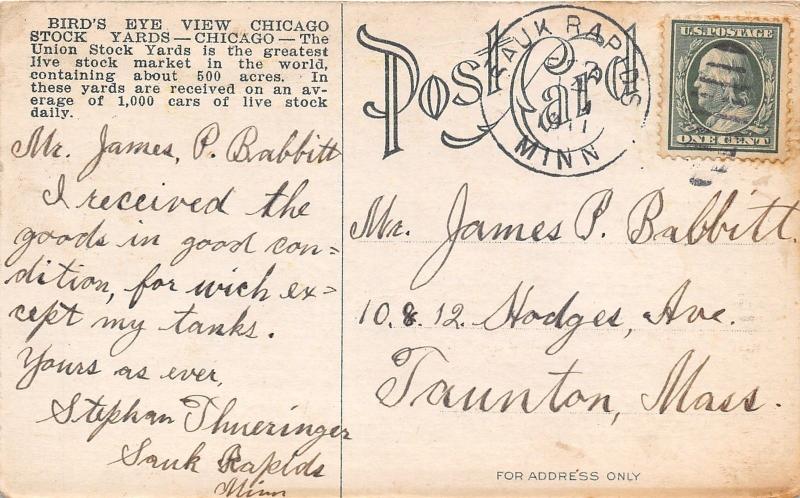 BIRD'S EYE VIEW CHICAGO
STOCK YARDS—CHICAGO—The
Union Stock Yards is the greatest
live stock market in the world,
containing about 500 acres. In
these yards are received on an av-
erage of 1,000 cars of live stock
daily.
Mr. James, P. Babbitt
I received the
goods in good con=
dition, for wich ex=
cept my tanks.
Yours as ever,
Stephan Thueringer
Sauk Rapids
Minn
Post Card
SAUK RAPIDS
MINN
U.S. POSTAGE
ONE CENT
Mr. James P. Babbitt.
10.&.12. Hodges, Ave.
Taunton, Mass.
FOR ADDRESS ONLY